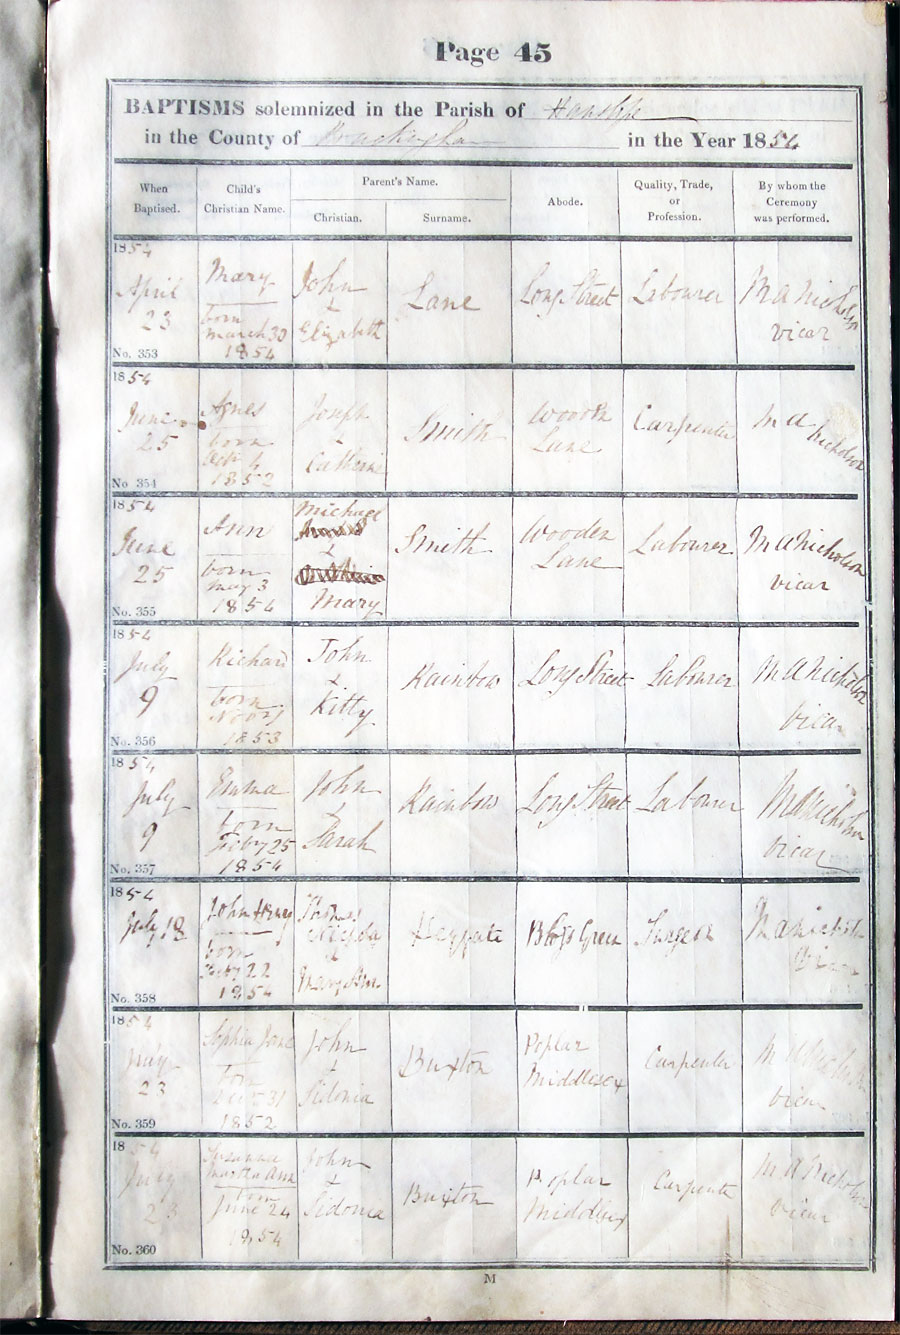 Page 45
BAPTISMS solemnized in the Parish of Hanslope
in the County of Buckingham in the Year 1854
When Baptised.
Child's Christian Name.
Parent's Name.
Christian.
Surname.
Abode.
Quality, Trade, or Profession.
By whom the Ceremony was performed.
1854
April 23
No. 353
Mary
born
march 30
1854
John
&
Elizabeth
Lane
Long Street
Labourer
M A Nicholson
vicar
1854
June 25
No. 354
Agnes
born
1852
Joseph
&
Catherine
Smith
Lane
Carpenter
M A Nicholson
1854
June 25
No. 355
Ann
born
May 3
1854
Michael
&
Mary
Smith
Wooden
Lane
Labourer
M A Nicholson
vicar
1854
July 9
No. 356
Richard
born
1853
John
&
Kitty
Rainbow
Long Street
Labourer
M A Nicholson
Vicar
1854
July 9
No. 357
Emma
born
Feby 25
1854
John
&
Sarah
Rainbow
Long Street
Labourer
M A Nicholson
Vicar
1854
July 18
No. 358
John Henry
born
Feby 22
1854
Thomas
&
Mary Ann
Heygate
Green
Surgeon
M A Nicholson
Vicar
1854
July 23
No. 359
Sophia Jane
born
31
1852
John
&
Sidonia
Buxton
Poplar
Middlesex
Carpenter
M A Nicholson
Vicar
1854
July 23
No. 360
Susannah
Martha Ann
born
June 24
1854
John
&
Sidonia
Buxton
Poplar
Middlesex
Carpenter
M A Nicholson
Vicar
M